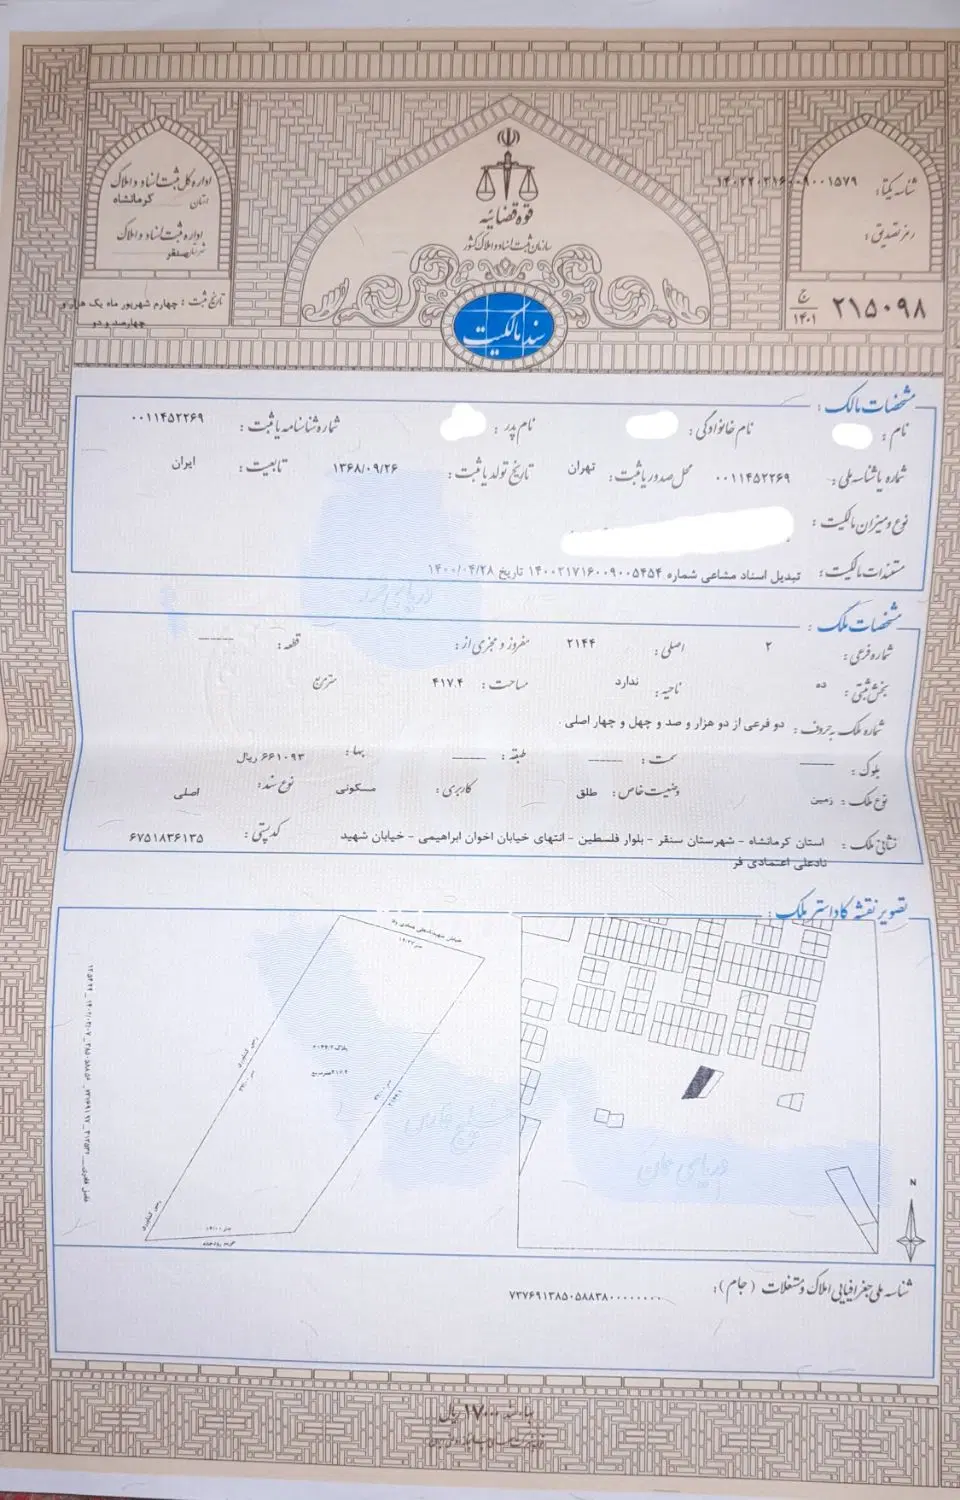 قوه قضائیه
سازمان ثبت اسناد و املاک کشور
سند مالکیت
شناسه یکتا: ۱۴۰۲۲۰۳۱۶۰۰۹۰۰۱۵۷۹
رمز تصدیق:
۲۱۵۰۹۸ ج ۱۴۰۱
اداره کل ثبت اسناد و املاک
استان کرمانشاه
اداره ثبت اسناد و املاک
شهرستان سنقر
تاریخ ثبت: چهارم شهریور ماه یک هزار و
چهارصد و دو
مشخصات مالک:
نام: نام خانوادگی: نام پدر: شماره شناسنامه یا ثبت: ۰۰۱۱۴۵۲۲۶۹
شماره یا شناسه ملی: ۰۰۱۱۴۵۲۲۶۹ محل صدور یا ثبت: تهران تاریخ تولد یا ثبت: ۱۳۶۸/۰۹/۲۶ تابعیت: ایران
نوع و میزان مالکیت:
مستندات مالکیت: تبدیل اسناد مشاعی شماره ۱۴۰۰۲۱۷۱۶۰۰۹۰۰۵۴۵۴ تاریخ ۱۴۰۰/۰۴/۲۸
مشخصات ملک:
شماره فرعی: ۲ اصلی: ۲۱۴۴ مفروز و مجزی از: قطعه: ------
بخش ثبتی: ده ناحیه: ندارد مساحت: ۴۱۷.۴ مترمربع
شماره ملک به حروف: دو فرعی از دو هزار و صد و چهل و چهار اصلی .
بلوک: ------ سمت: ------ طبقه: ------ بها: ۶۶۱۰۹۳ ریال
نوع ملک: زمین وضعیت خاص: طلق کاربری: مسکونی نوع سند: اصلی
نشانی ملک: استان کرمانشاه - شهرستان سنقر - بلوار فلسطین - انتهای خیابان اخوان ابراهیمی - خیابان شهید کد پستی: ۶۷۵۱۸۳۶۱۳۵
نادعلی اعتمادی فر
تصویر نقشه کاداستر ملک:
N
دریای عمان
خلیج فارس
شناسه ملی جغرافیایی املاک و مستغلات (جام): ۷۳۷۶۹۱۳۸۵۰۵۸۸۳۸۰۰۰۰۰۰۰۰